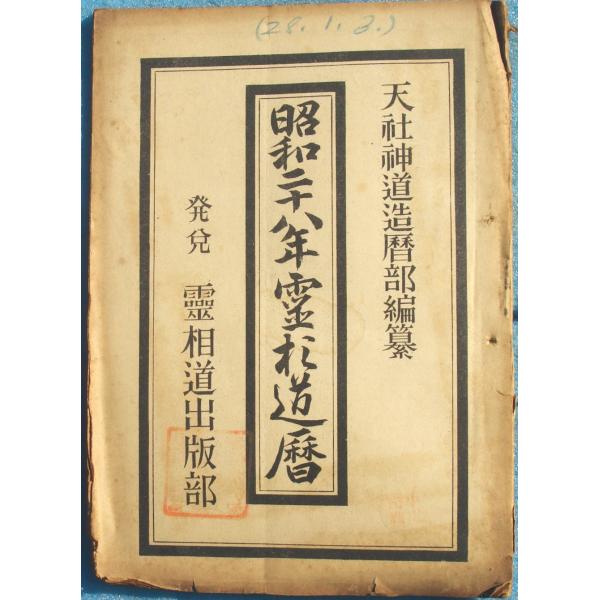 (28.1.3.)
天社神道造暦部編纂
昭和二十八年霊相道暦
発兌 靈相道出版部